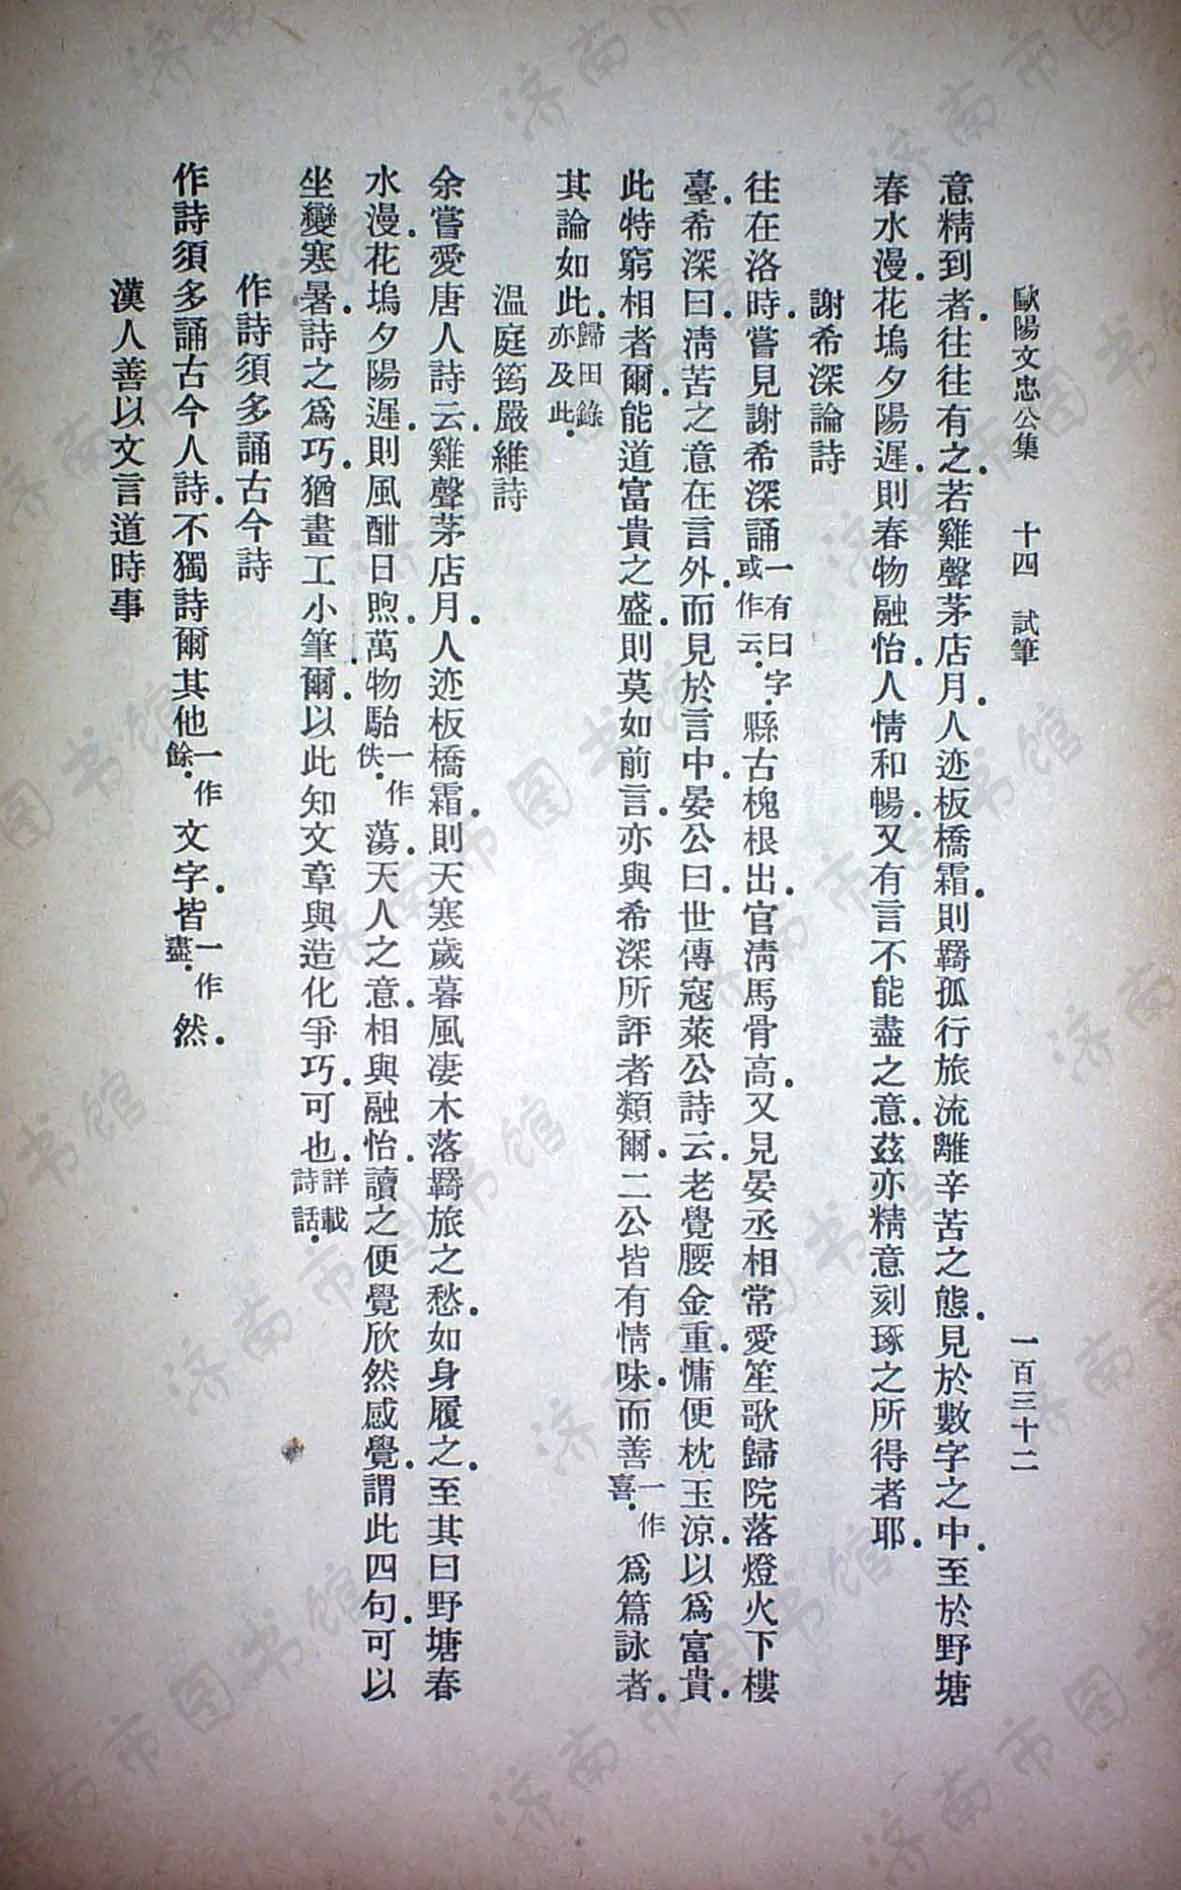 歐陽文忠公集　十四　試筆　一百三十二
意精到者．往往有之．若雞聲茅店月．人迹板橋霜．則羇孤行旅流離辛苦之態．見於數字之中．至於野塘
春水漫．花塢夕陽遲．則春物融怡．人情和暢．又有言不能盡之意．茲亦精意刻琢之所得者耶．
謝希深論詩
往在洛時．嘗見謝希深誦一有曰字．或作云．縣古槐根出．官淸馬骨高．又見晏丞相常愛笙歌歸院落燈火下樓
臺．希深曰．淸苦之意在言外．而見於言中．晏公曰．世傳寇萊公詩云．老覺腰金重．慵便枕玉涼．以爲富貴．
此特窮相者爾．能道富貴之盛．則莫如前言．亦與希深所評者類爾．二公皆有情味．而善一作喜．爲篇詠者．
其論如此．歸田錄亦及此．
溫庭筠嚴維詩
余嘗愛唐人詩云．雞聲茅店月．人迹板橋霜．則天寒歲暮風凄木落羇旅之愁．如身履之．至其曰野塘春
水漫．花塢夕陽遲．則風酣日煦．萬物駘一作佚．蕩．天人之意．相與融怡．讀之便覺欣然感覺．謂此四句．可以
坐變寒暑．詩之爲巧．猶畫工小筆爾．以此知文章與造化爭巧．可也．詳載詩話．
作詩須多誦古今詩
作詩須多誦古今人詩．不獨詩爾其他一作餘．文字．皆一作盡．然．
漢人善以文言道時事
济南市图书馆